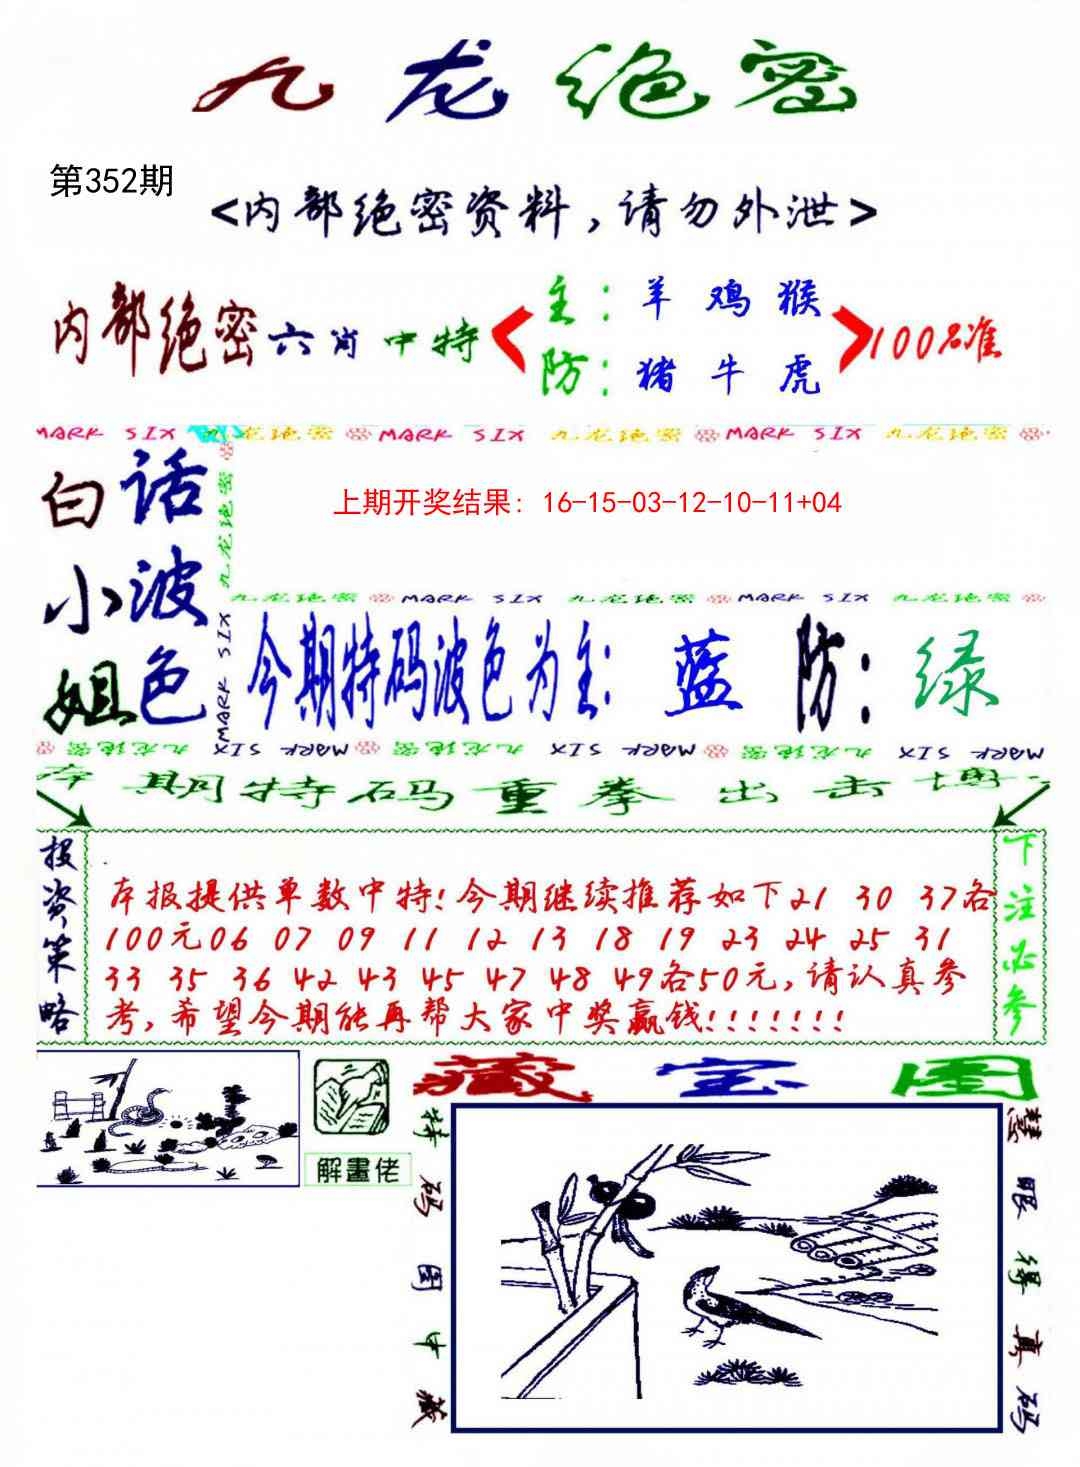 九龙绝密
第352期
<内部绝密资料，请勿外泄>
内部绝密六肖中特
主：羊 鸡 猴
防：猪 牛 虎
100%准
MARK SIX 九龙绝密 MARK SIX 九龙绝密 MARK SIX 九龙绝密
白小姐
话波色
九龙绝密
MARK SIX
上期开奖结果：16-15-03-12-10-11+04
九龙绝密 MARK SIX 九龙绝密 MARK SIX 九龙绝密
今期特码波色为主：蓝 防：绿
九龙绝密 MARK SIX 九龙绝密 MARK SIX 九龙绝密 MARK SIX
本期特码重拳出击博
投资策略
本报提供单数中特！今期继续推荐如下21 30 37各
100元06 07 09 11 12 13 18 19 23 24 25 31
33 35 36 42 43 45 47 48 49各50元，请认真参
考，希望今期能再帮大家中奖赢钱！！！！！！！
下注必参
解畫佬
藏宝图
特码图中藏
慧眼得真码